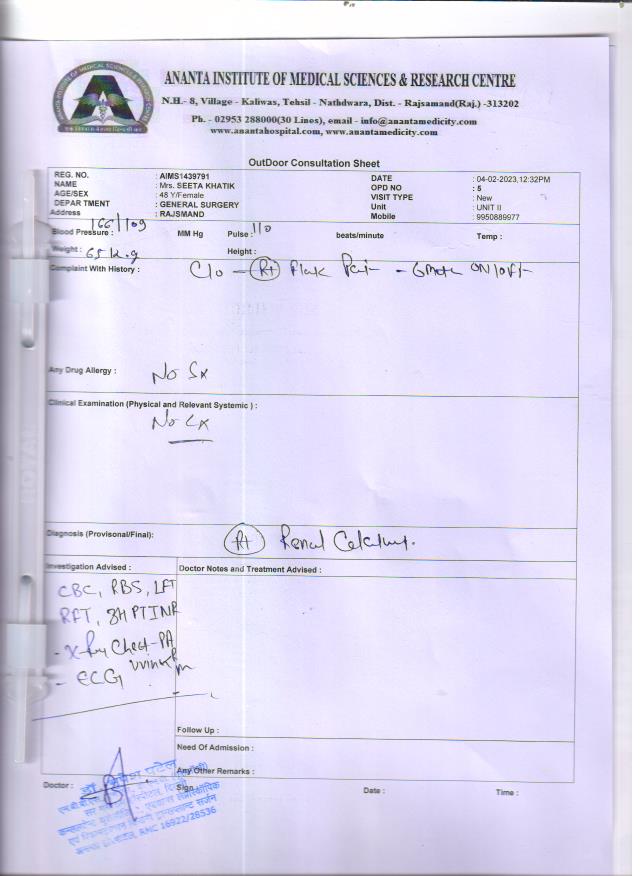 ANANTA INSTITUTE OF MEDICAL SCIENCES & RESEARCH CENTRE
N.H.- 8, Village - Kaliwas, Tehsil - Nathdwara, Dist. - Rajsamand(Raj.) -313202
Ph. - 02953 288000(30 Lines), email - info@anantamedicity.com
www.anantahospital.com, www.anantamedicity.com
OutDoor Consultation Sheet
REG. NO. : AIMS1439791 DATE : 04-02-2023,12:32PM
NAME : Mrs. SEETA KHATIK OPD NO : 5
AGE/SEX : 48 Y/Female VISIT TYPE : New
DEPARTMENT : GENERAL SURGERY Unit : UNIT II
Address : RAJSMAND Mobile : 9950889977
Blood Pressure : 166/109 MM Hg Pulse : 110 beats/minute Temp :
Weight : 65 k.g Height :
Complaint With History : C/o - Rt Flank Pain - 6 month ON/OFF
Any Drug Allergy : No Sx
Clinical Examination (Physical and Relevant Systemic ) :
No Cx
Diagnosis (Provisonal/Final): Rt Renal Calculus.
Investigation Advised : Doctor Notes and Treatment Advised :
CBC, RBS, LFT
RFT, PT INR
- X-Ray Chest-PA
- ECG
Follow Up :
Need Of Admission :
Any Other Remarks :
Doctor : Sign : Date : Time :
RMC 16922/28536